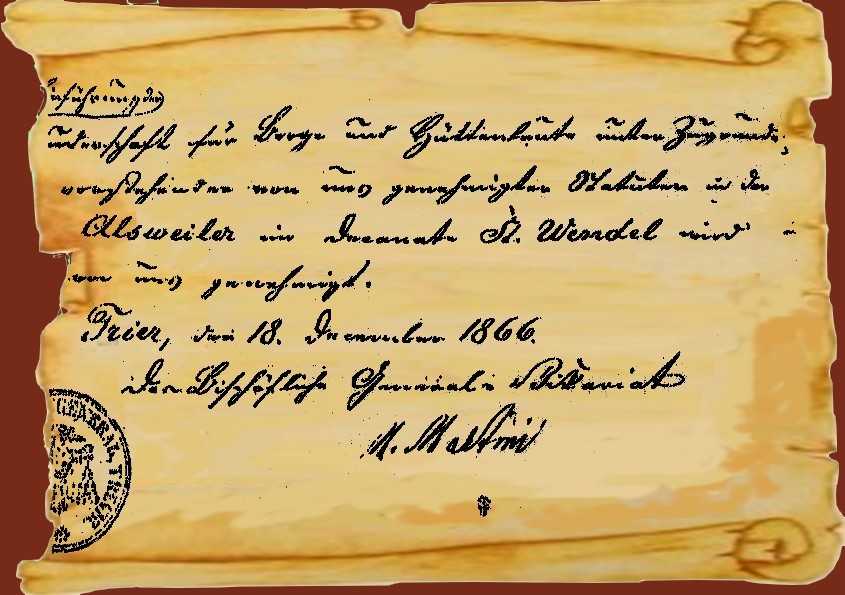 führung der
uderschaft für Berg- und Hüttenleute unter Zugrunde-
vorstehenden von uns genehmigten Statuten in der
Alsweiler im Decanate St. Wendel wird
von uns genehmigt.
Trier, den 18. December 1866.
Das Bischöfliche General-Vikariat
M. Martini
GENERAL